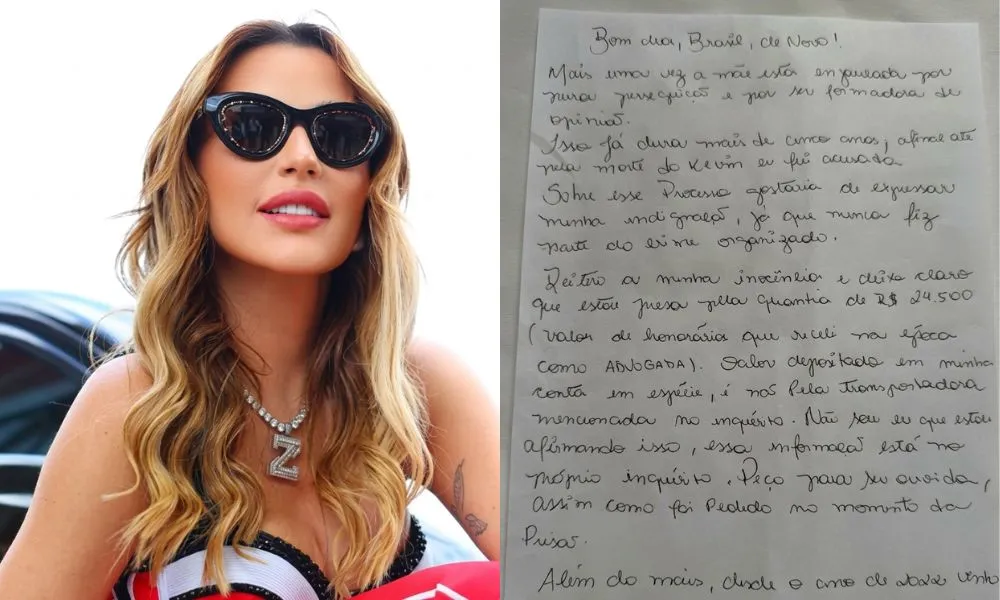 Z
Bom dia, Brasil, de Novo!
Mais uma vez a mãe está enjaulada por
pura perseguiçaõ e por ser formadora de
opiniaõ.
Isso já dura mais de cinco anos, afinal até
pela morte do Kevin eu fui acusada
Sobre esse Processo gostaria de expressar
minha indignaçaõ, já que nunca fiz
parte do crime organizado.
Reitero a minha inocência e deixo claro
que estou presa pela quantia de R$ 24.500
(valor de honorários que recebi na época
como ADVOGADA). Valor depositado em minha
conta em espécie, e não Pela transportadora
mencionada no inquérito. Não sou eu que estou
afirmando isso, essa informaçaõ está no
próprio inquérito. Peço para ser ouvida,
assim como foi Pedido no momento da
Prisaõ.
Além do mais, desde o ano de